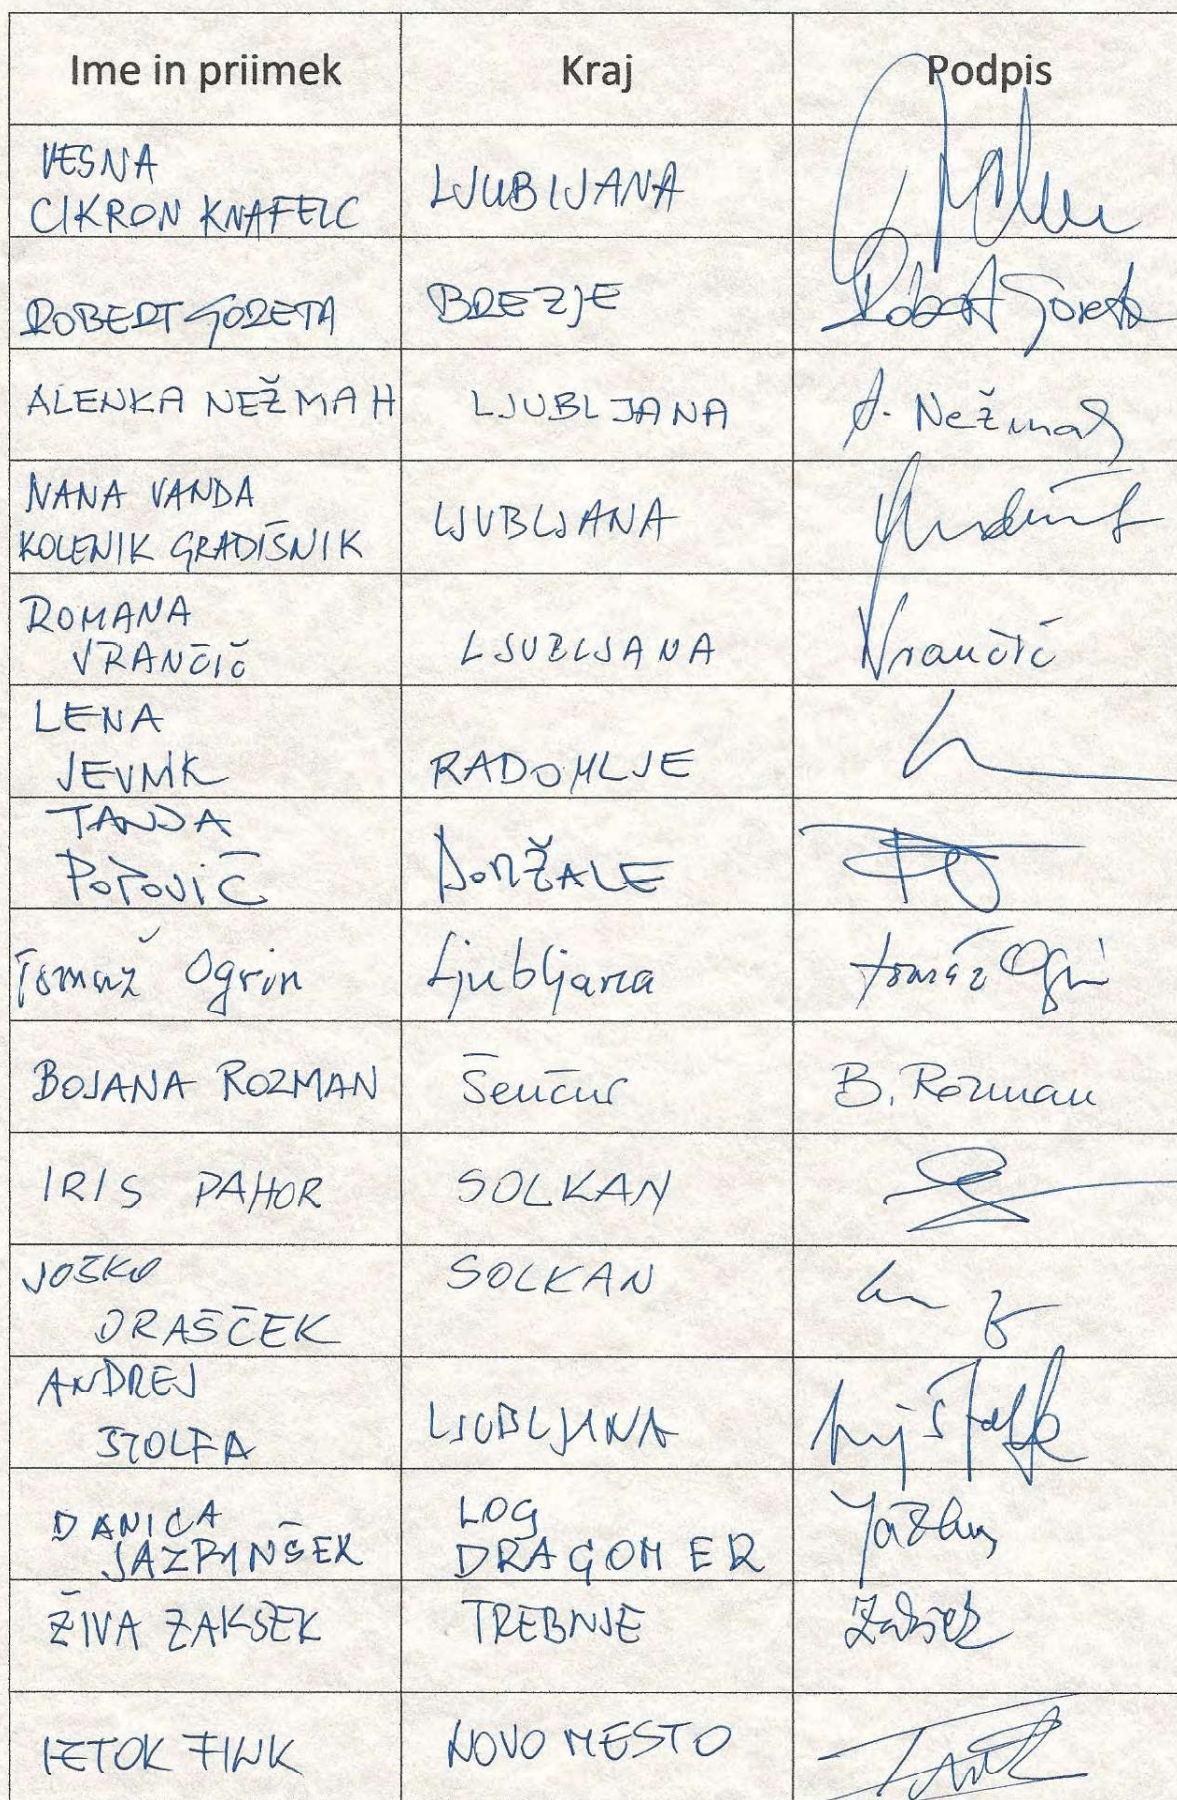 Ime in priimek Kraj Podpis
VESNA
CIKRON KNAFELC LJUBLJANA
ROBERT GORETA BREZJE Robert Goreta
ALENKA NEŽMAH LJUBLJANA A. Nežmah
NANA VANDA
KOLENIK GRADIŠNIK LJUBLJANA
ROMANA
VRANČIČ LJUBLJANA Vrančič
LENA
JEVNIK RADOMLJE
TANJA
POPOVIČ DOMŽALE
Tomaž Ogrin Ljubljana Tomaž Ogrin
BOJANA ROZMAN Šenčur B. Rozman
IRIS PAHOR SOLKAN
JOŠKO SOLKAN
DRAŠČEK
ANDREJ
ŠTOLFA LJUBLJANA
DANICA LOG
JAZBINŠEK DRAGOMER
ŽIVA ZAKŠEK TREBNJE Zakšek
IZTOK FINK NOVO MESTO